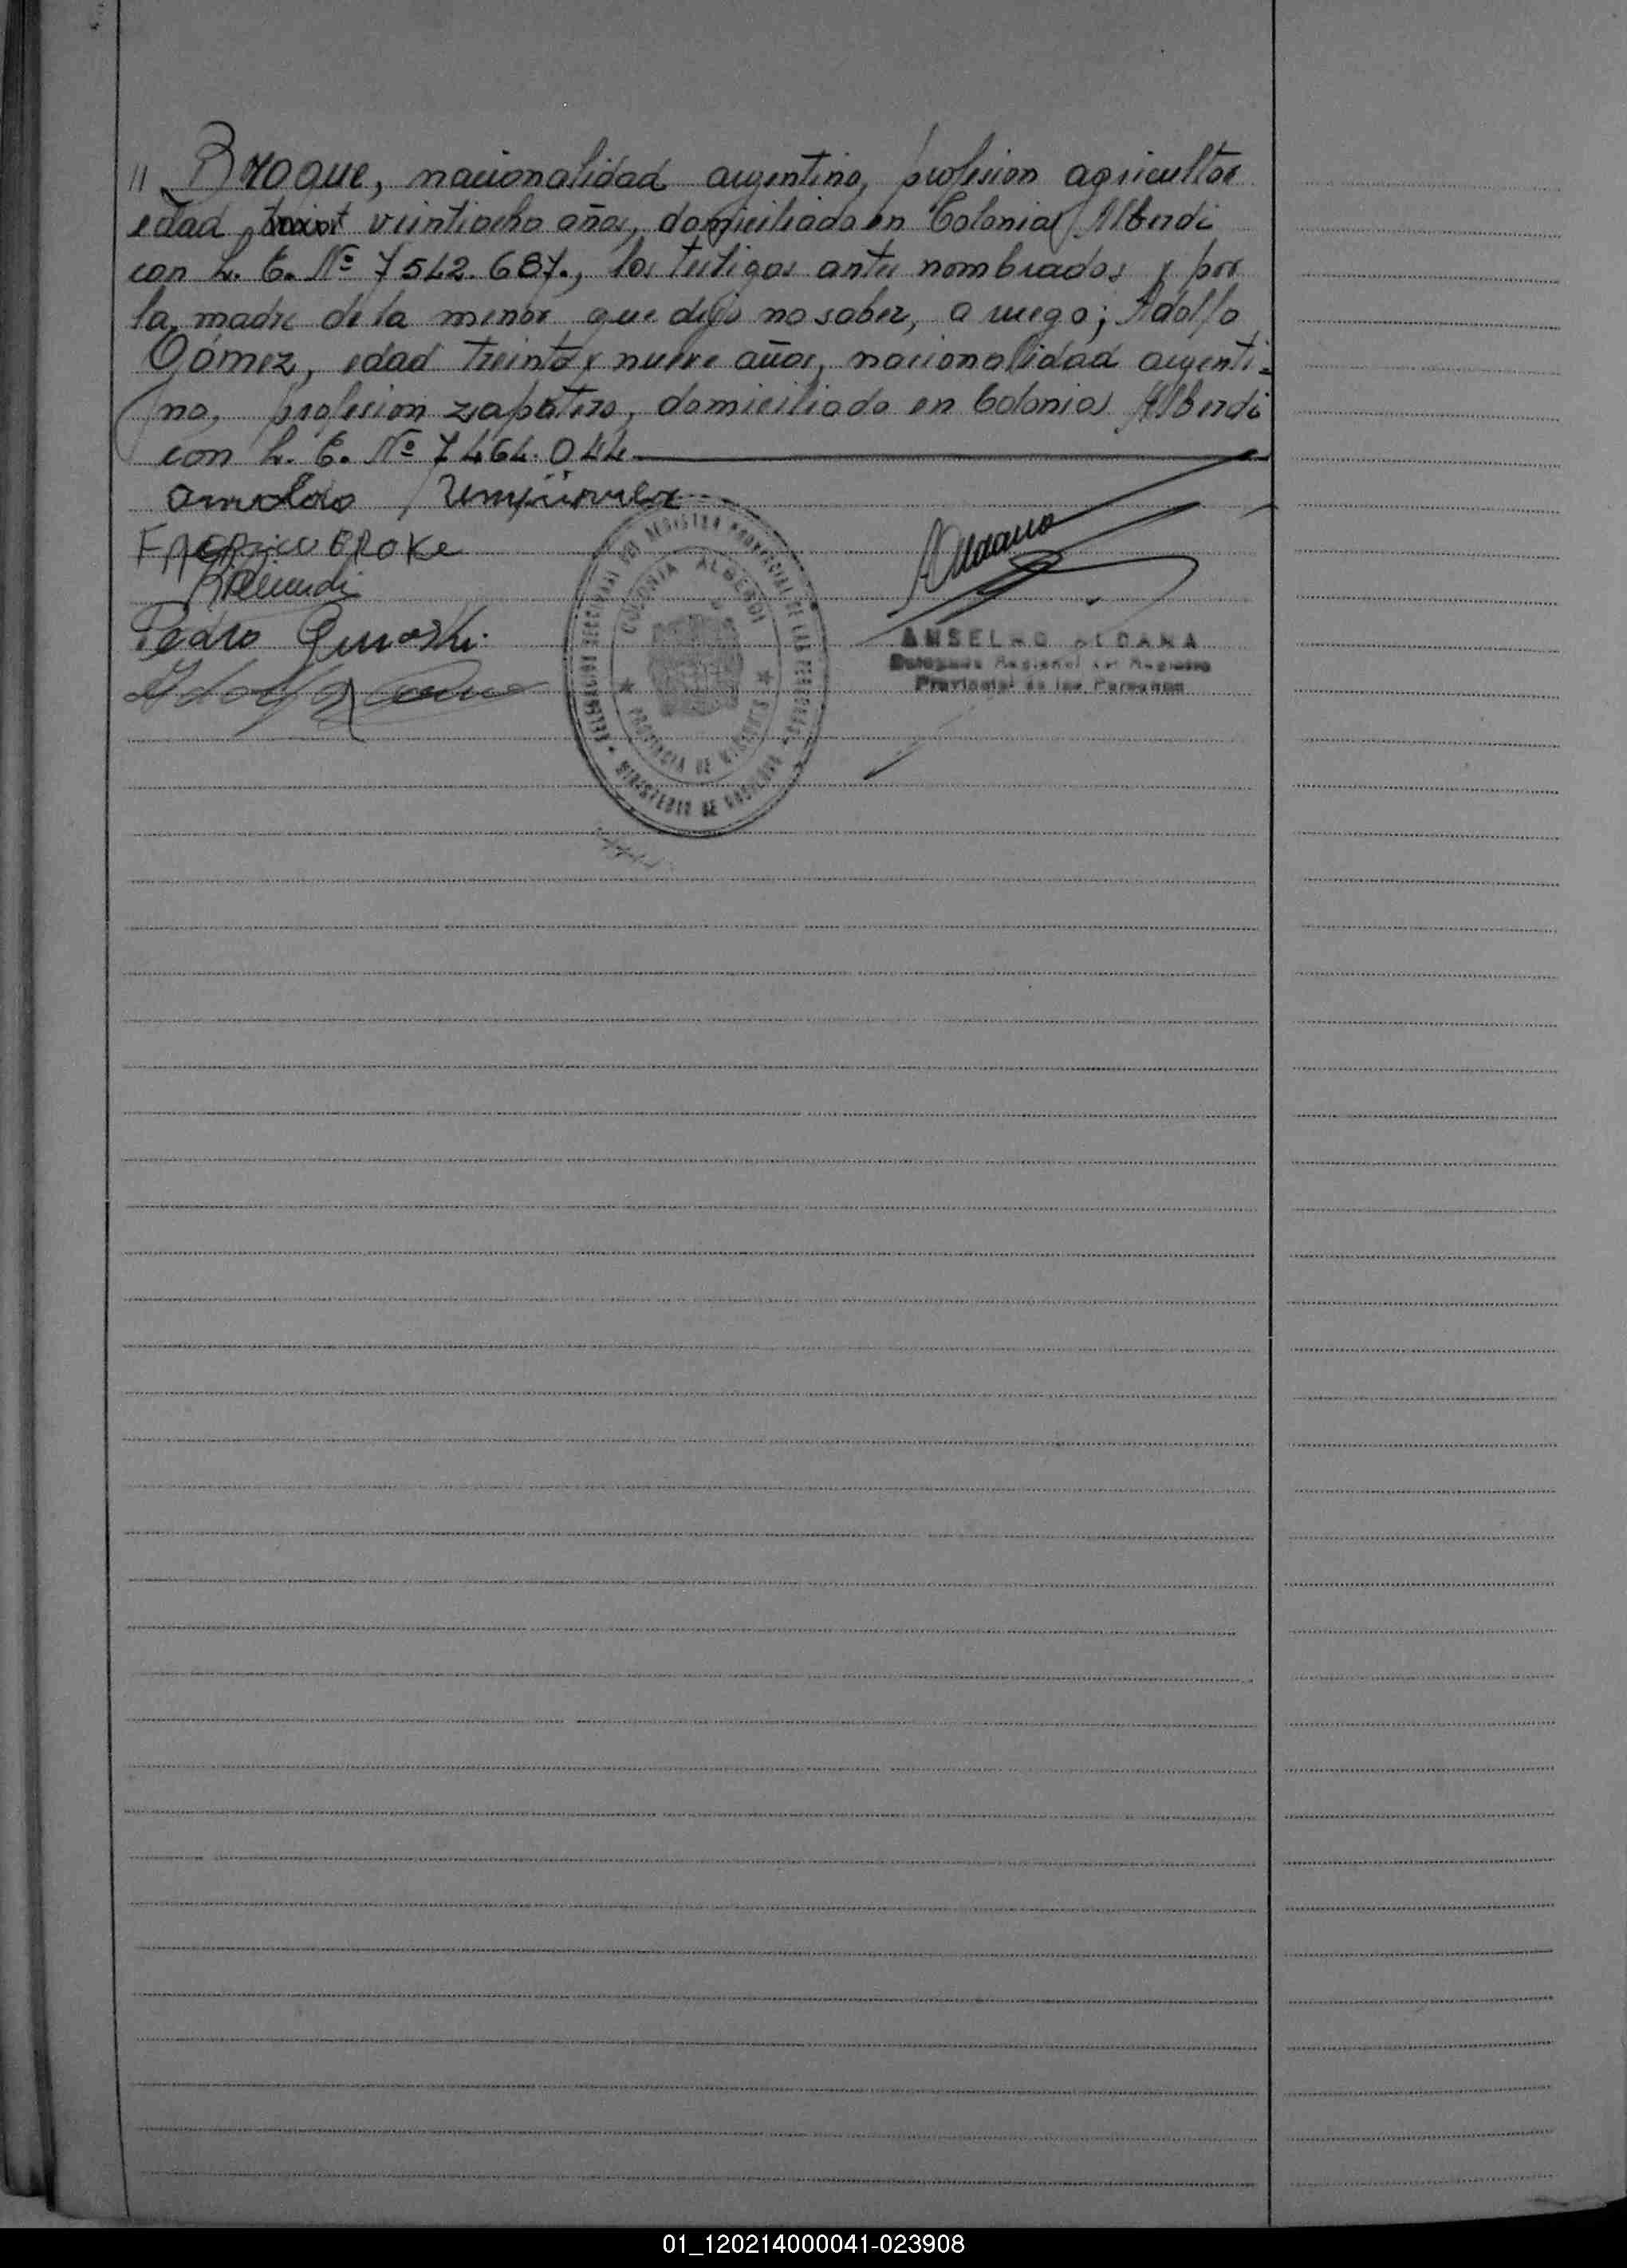 // Broque, nacionalidad argentino, profesion agricultor
edad veintiocho años, domiciliado en Colonia Alberdi
con L. E. Nº 7542.687., los testigos antes nombrados y por
la madre de la menor que dijo no saber, a ruego; Adolfo
Gómez, edad treinta y nueve años, nacionalidad argenti-
no, profesion zapatero, domiciliado en Colonia Alberdi
con L. E. Nº 7464.044.
BROKE
Pedro
COLONIA ALBERDI
PROVINCIA DE MISIONES
MINISTERIO DE GOBIERNO
REGISTRO PROVINCIAL DE LAS PERSONAS
ANSELMO ALDANA
Delegado Regional del Registro
Provincial de las Personas
01_120214000041-023908